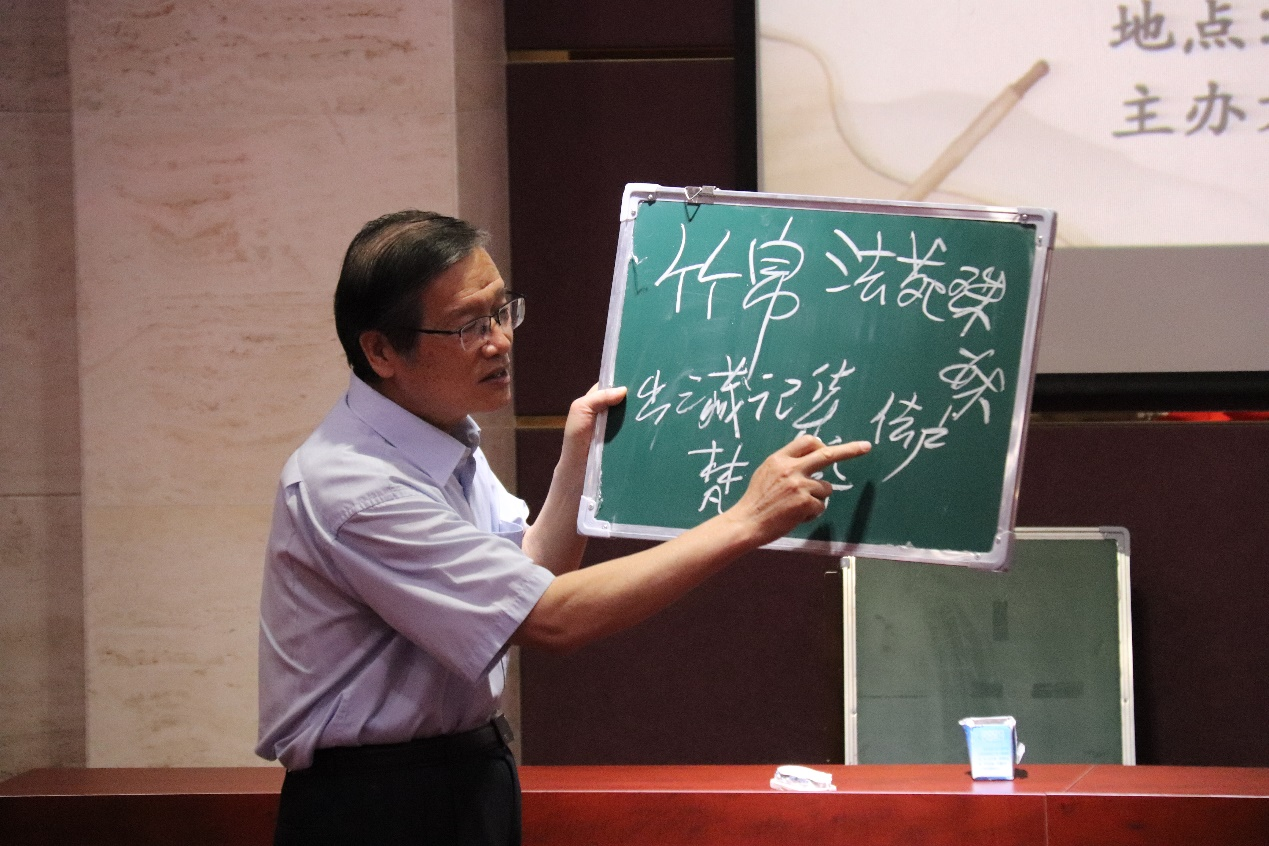 地点:
主办
竹帛 法苑
出三藏记集 佉卢
梵